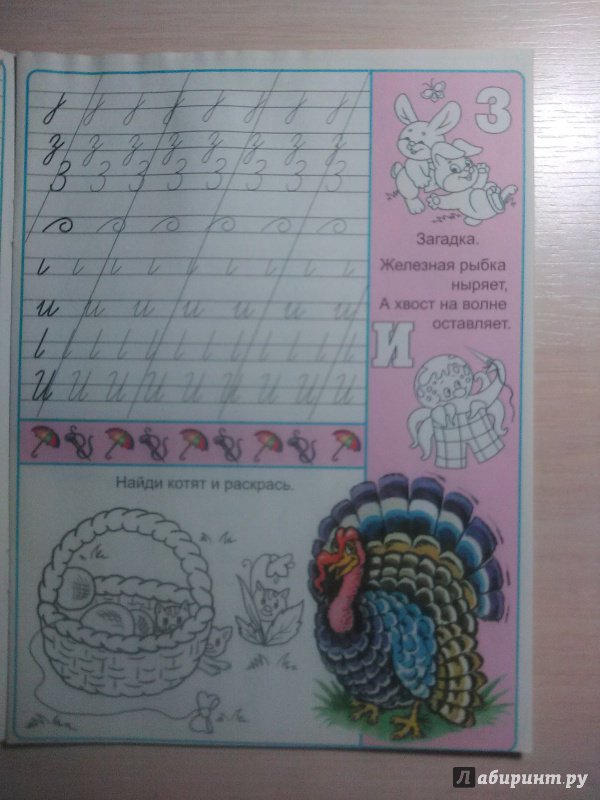 з з з з з з з з
З З З З З З З З
и и и и и и и
И И И И И И И И И
З
Загадка.
Железная рыбка
ныряет,
А хвост на волне
оставляет.
И
Найди котят и раскрась.
Лабиринт.ру